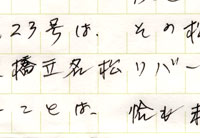 23号は、その松
橋立名松リバー
ことは、恰も